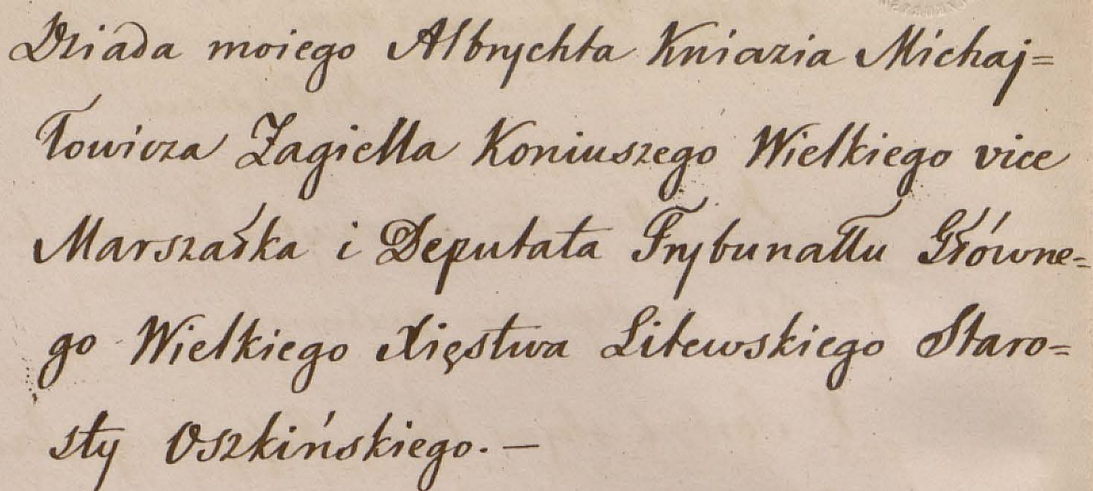 Dziada moiego Albrychta Kniazia Michaj=
łowicza Żagiella Koniuszego Wielkiego vice
Marszałka i Deputata Trybunałłu Główne=
go Wielkiego Xięstwa Litewskiego Staro=
sty Oszkińskiego. —